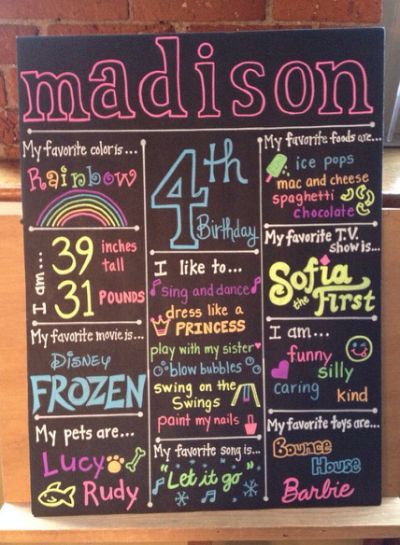 madison
My favorite color is...
Rainbow
I am...
39 inches
tall
31 POUNDS
My favorite movie is...
DISNEY
FROZEN
My pets are...
Lucy
Rudy
4th
Birthday
I like to...
sing and dance
dress like a
PRINCESS
play with my sister
blow bubbles
swing on the
Swings
paint my nails
My favorite song is...
"Let it go"
My favorite foods are...
ice pops
mac and cheese
spaghetti
chocolate
My favorite T.V.
show is...
Sofia
the First
I am...
funny
silly
caring
kind
My favorite toys are...
Bounce
House
Barbie